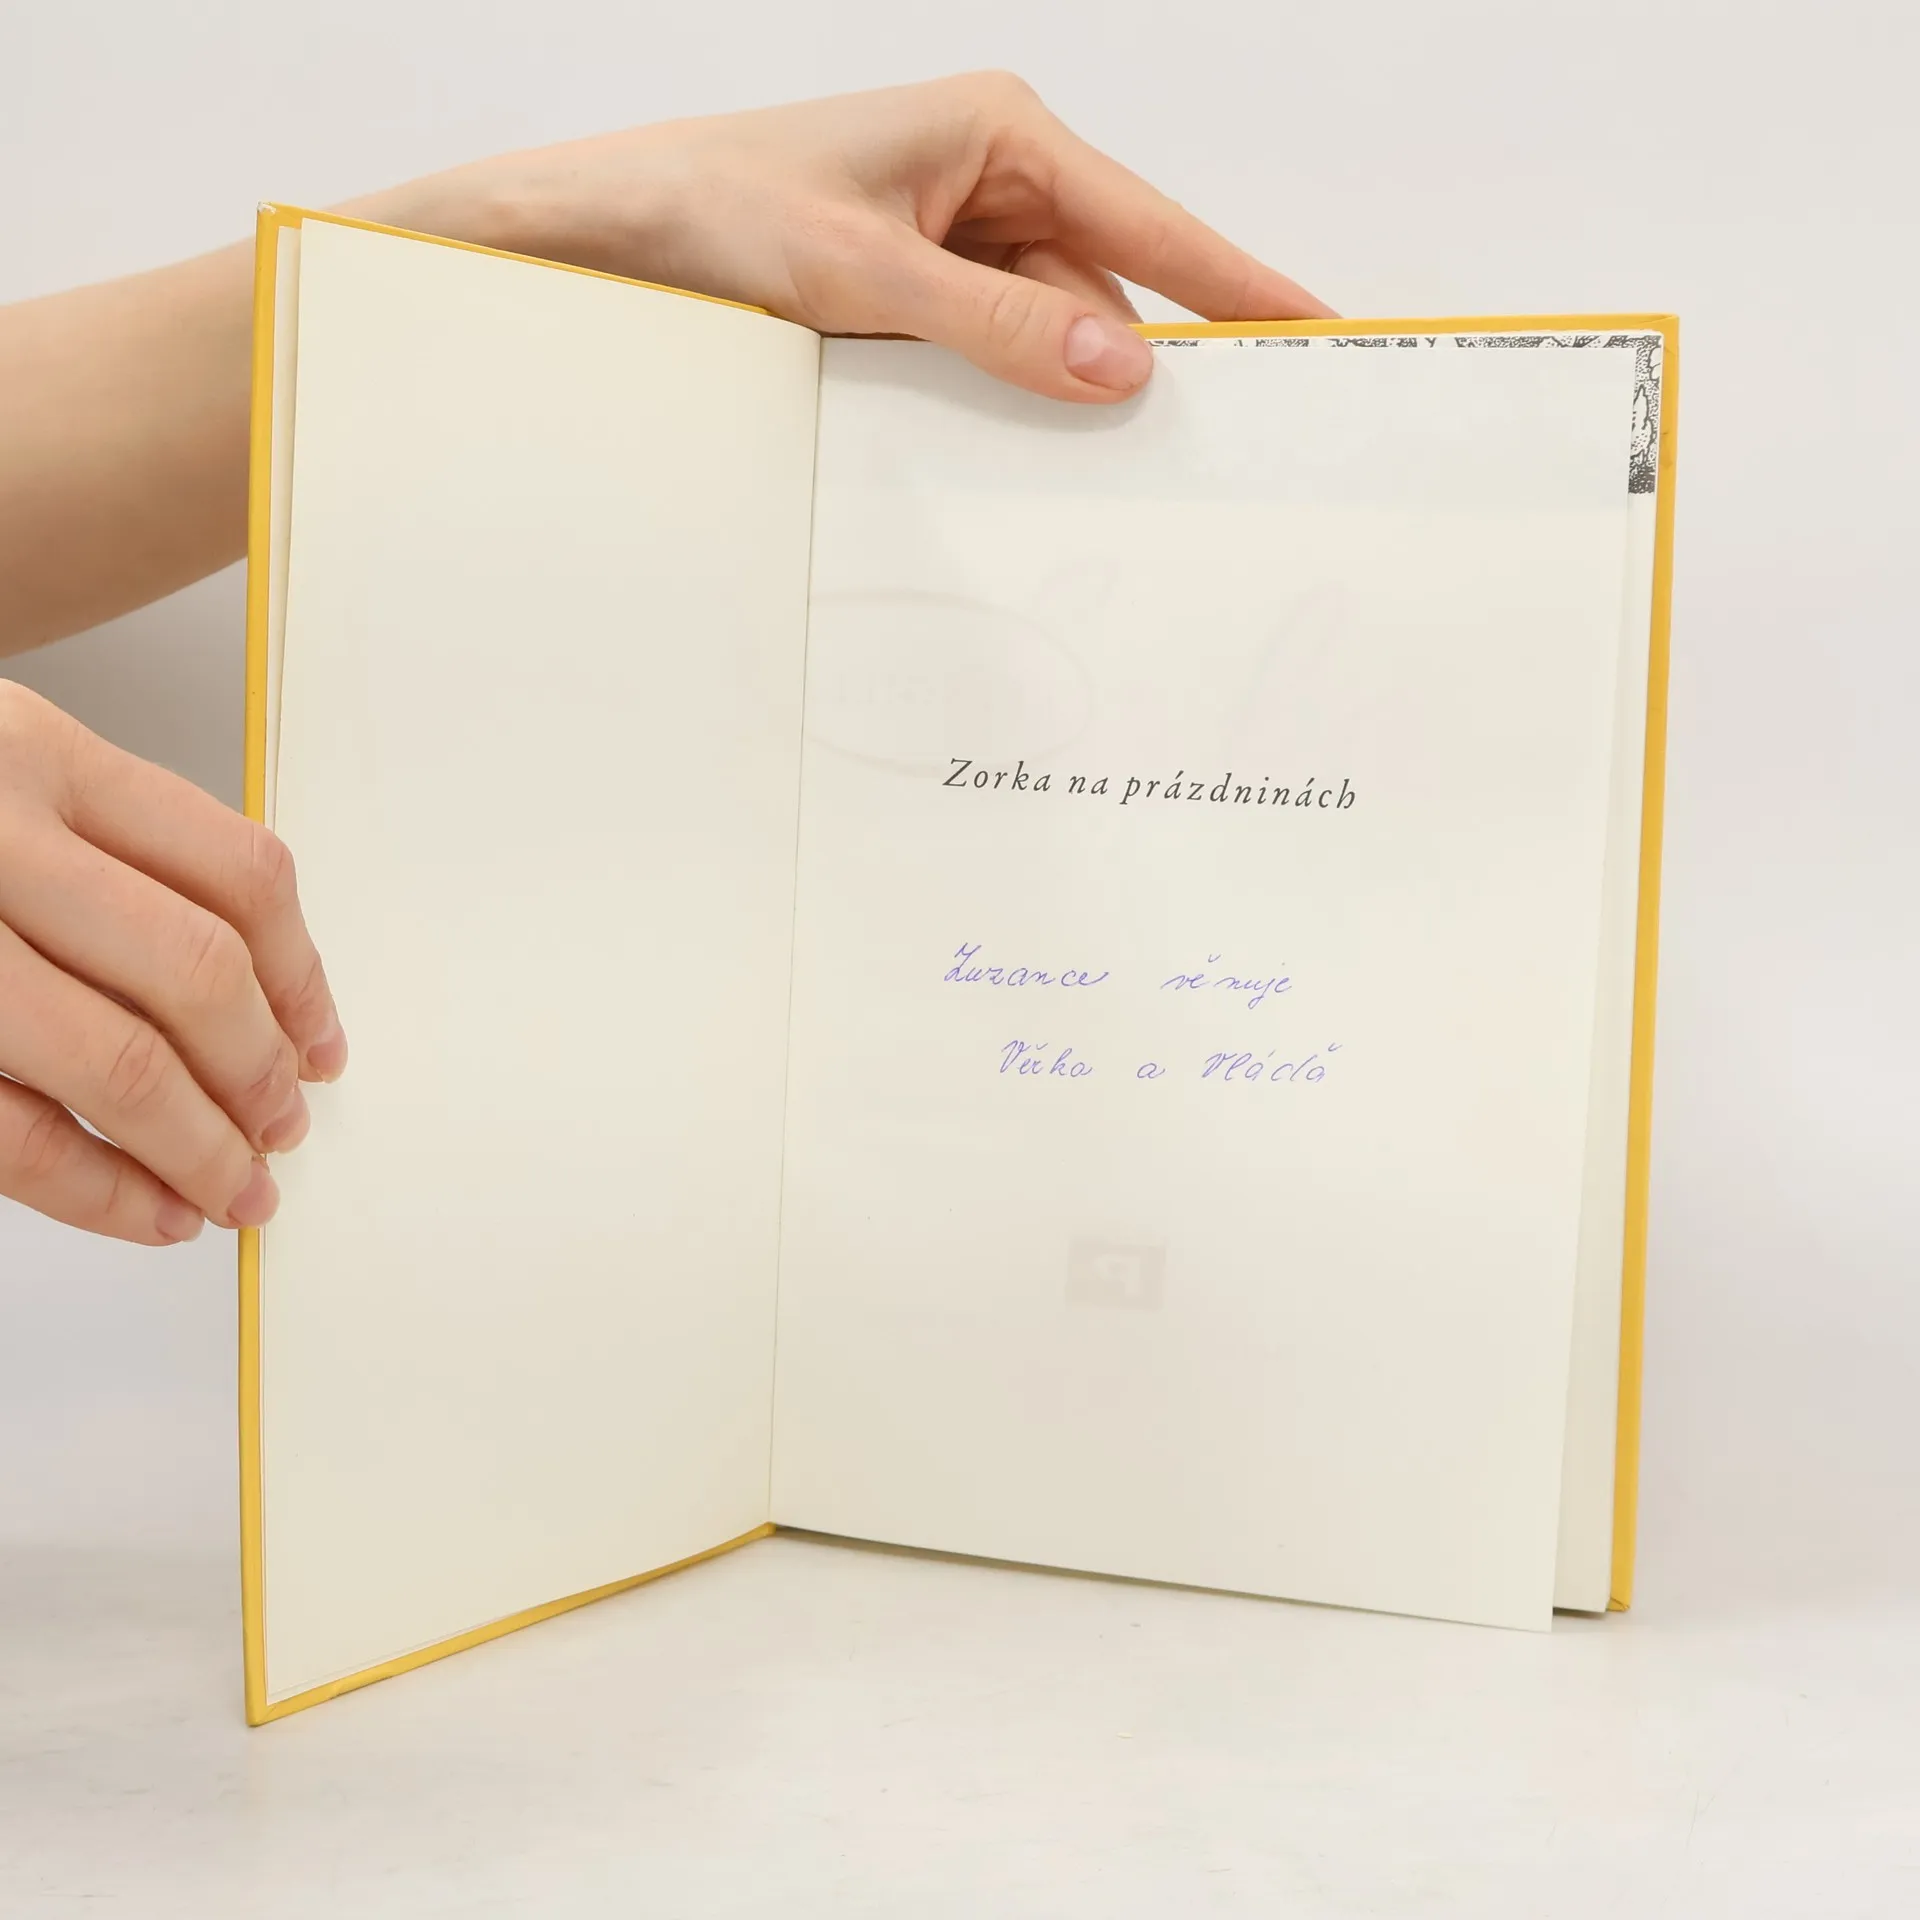 Zorka na prázdninách
Zuzance věnuje
Věrka a Vláďa